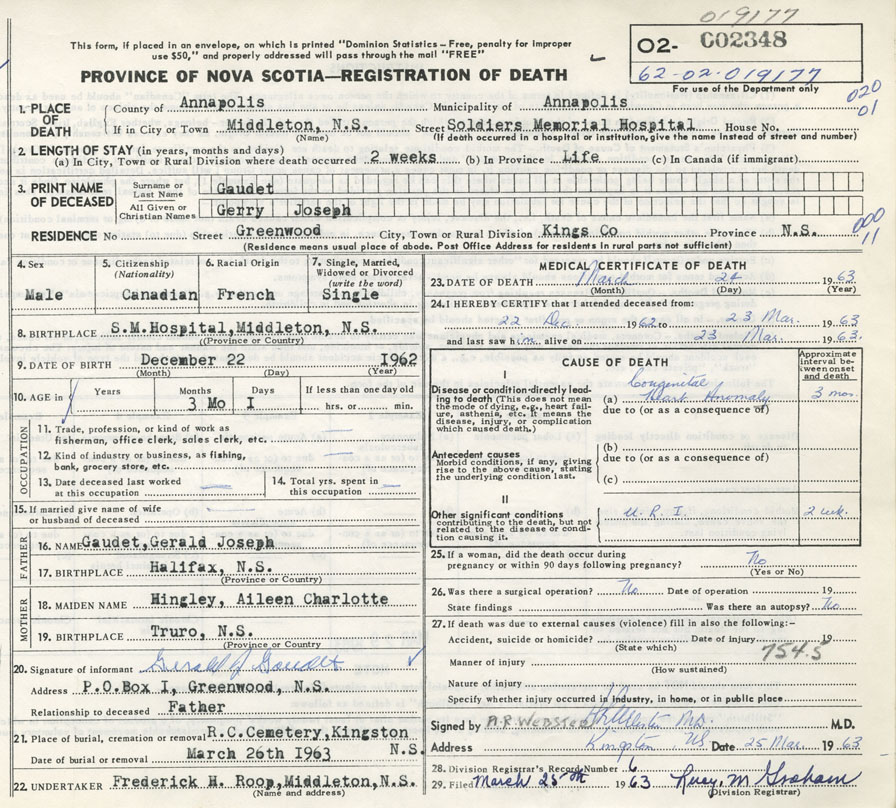 019177
This form, if placed in an envelope, on which is printed "Dominion Statistics – Free, penalty for improper
use $50," and properly addressed will pass through the mail "FREE"
O2- C02348
PROVINCE OF NOVA SCOTIA—REGISTRATION OF DEATH
62-02-019177
For use of the Department only
020
01
1. PLACE OF DEATH
County of Annapolis Municipality of Annapolis
If in City or Town Middleton, N.S. Street Soldiers Memorial Hospital House No.
(Name) (If death occurred in a hospital or institution, give the name instead of street and number)
2. LENGTH OF STAY (in years, months and days)
(a) In City, Town or Rural Division where death occurred 2 weeks (b) In Province Life (c) In Canada (if immigrant)
3. PRINT NAME OF DECEASED
Surname or Last Name Gaudet
All Given or Christian Names Gerry Joseph
RESIDENCE No Street Greenwood City, Town or Rural Division Kings Co Province N.S.
000
11
(Residence means usual place of abode. Post Office Address for residents in rural parts not sufficient)
4. Sex
Male
5. Citizenship
(Nationality)
Canadian
6. Racial Origin
French
7. Single, Married,
Widowed or Divorced
(write the word)
Single
8. BIRTHPLACE S.M.Hospital, Middleton, N.S.
(Province or Country)
9. DATE OF BIRTH December 22 1962
(Month) (Day) (Year)
10. AGE in Years Months Days If less than one day old
3 Mo I hrs. or min.
OCCUPATION
11. Trade, profession, or kind of work as
fisherman, office clerk, sales clerk, etc. —
12. Kind of industry or business, as fishing,
bank, grocery store, etc. —
13. Date deceased last worked
at this occupation —
14. Total yrs. spent in
this occupation —
15. If married give name of wife
or husband of deceased
FATHER
16. NAME Gaudet, Gerald Joseph
17. BIRTHPLACE Halifax, N.S.
(Province or Country)
MOTHER
18. MAIDEN NAME Hingley, Aileen Charlotte
19. BIRTHPLACE Truro, N.S.
(Province or Country)
20. Signature of informant Gerald J Gaudet
Address P.O.Box I, Greenwood, N.S.
Relationship to deceased Father
21. Place of burial, cremation or removal R.C.Cemetery, Kingston
N.S.
Date of burial or removal March 26th 1963
22. UNDERTAKER Frederick H. Roop, Middleton, N.S.
(Name and address)
MEDICAL CERTIFICATE OF DEATH
23. DATE OF DEATH March 24 1963
(Month) (Day) (Year)
24. I HEREBY CERTIFY that I attended deceased from:
22 Dec. 1962 to 23 Mar. 1963
and last saw him alive on 23 Mar. 1963.
CAUSE OF DEATH
Approximate
interval be-
tween onset
and death
I
Disease or condition directly lead-
ing to death (This does not mean
the mode of dying, e.g., heart fail-
ure, asthenia, etc. It means the
disease, injury, or complication
which caused death.)
(a) Congenital Heart Anomaly 3 mos.
due to (or as a consequence of)
Antecedent causes
Morbid conditions, if any, giving
rise to the above cause, stating
the underlying condition last.
(b)
due to (or as a consequence of)
(c)
II
Other significant conditions
contributing to the death, but not
related to the disease or condi-
tion causing it.
U.R.I. 2 wk.
25. If a woman, did the death occur during
pregnancy or within 90 days following pregnancy? No
(Yes or No)
26. Was there a surgical operation? No Date of operation 19
State findings Was there an autopsy? No
27. If death was due to external causes (violence) fill in also the following:–
Accident, suicide or homicide? Date of injury 19
(State which)
754.5
Manner of injury
(How sustained)
Nature of injury
Specify whether injury occurred in industry, in home, or in public place
Signed by A.R. WEBSTER M.D.
Address Kingston NS Date 25 Mar. 1963
28. Division Registrar's Record Number 6
29. Filed March 25th 1963 Lucy M Graham
(Division Registrar)